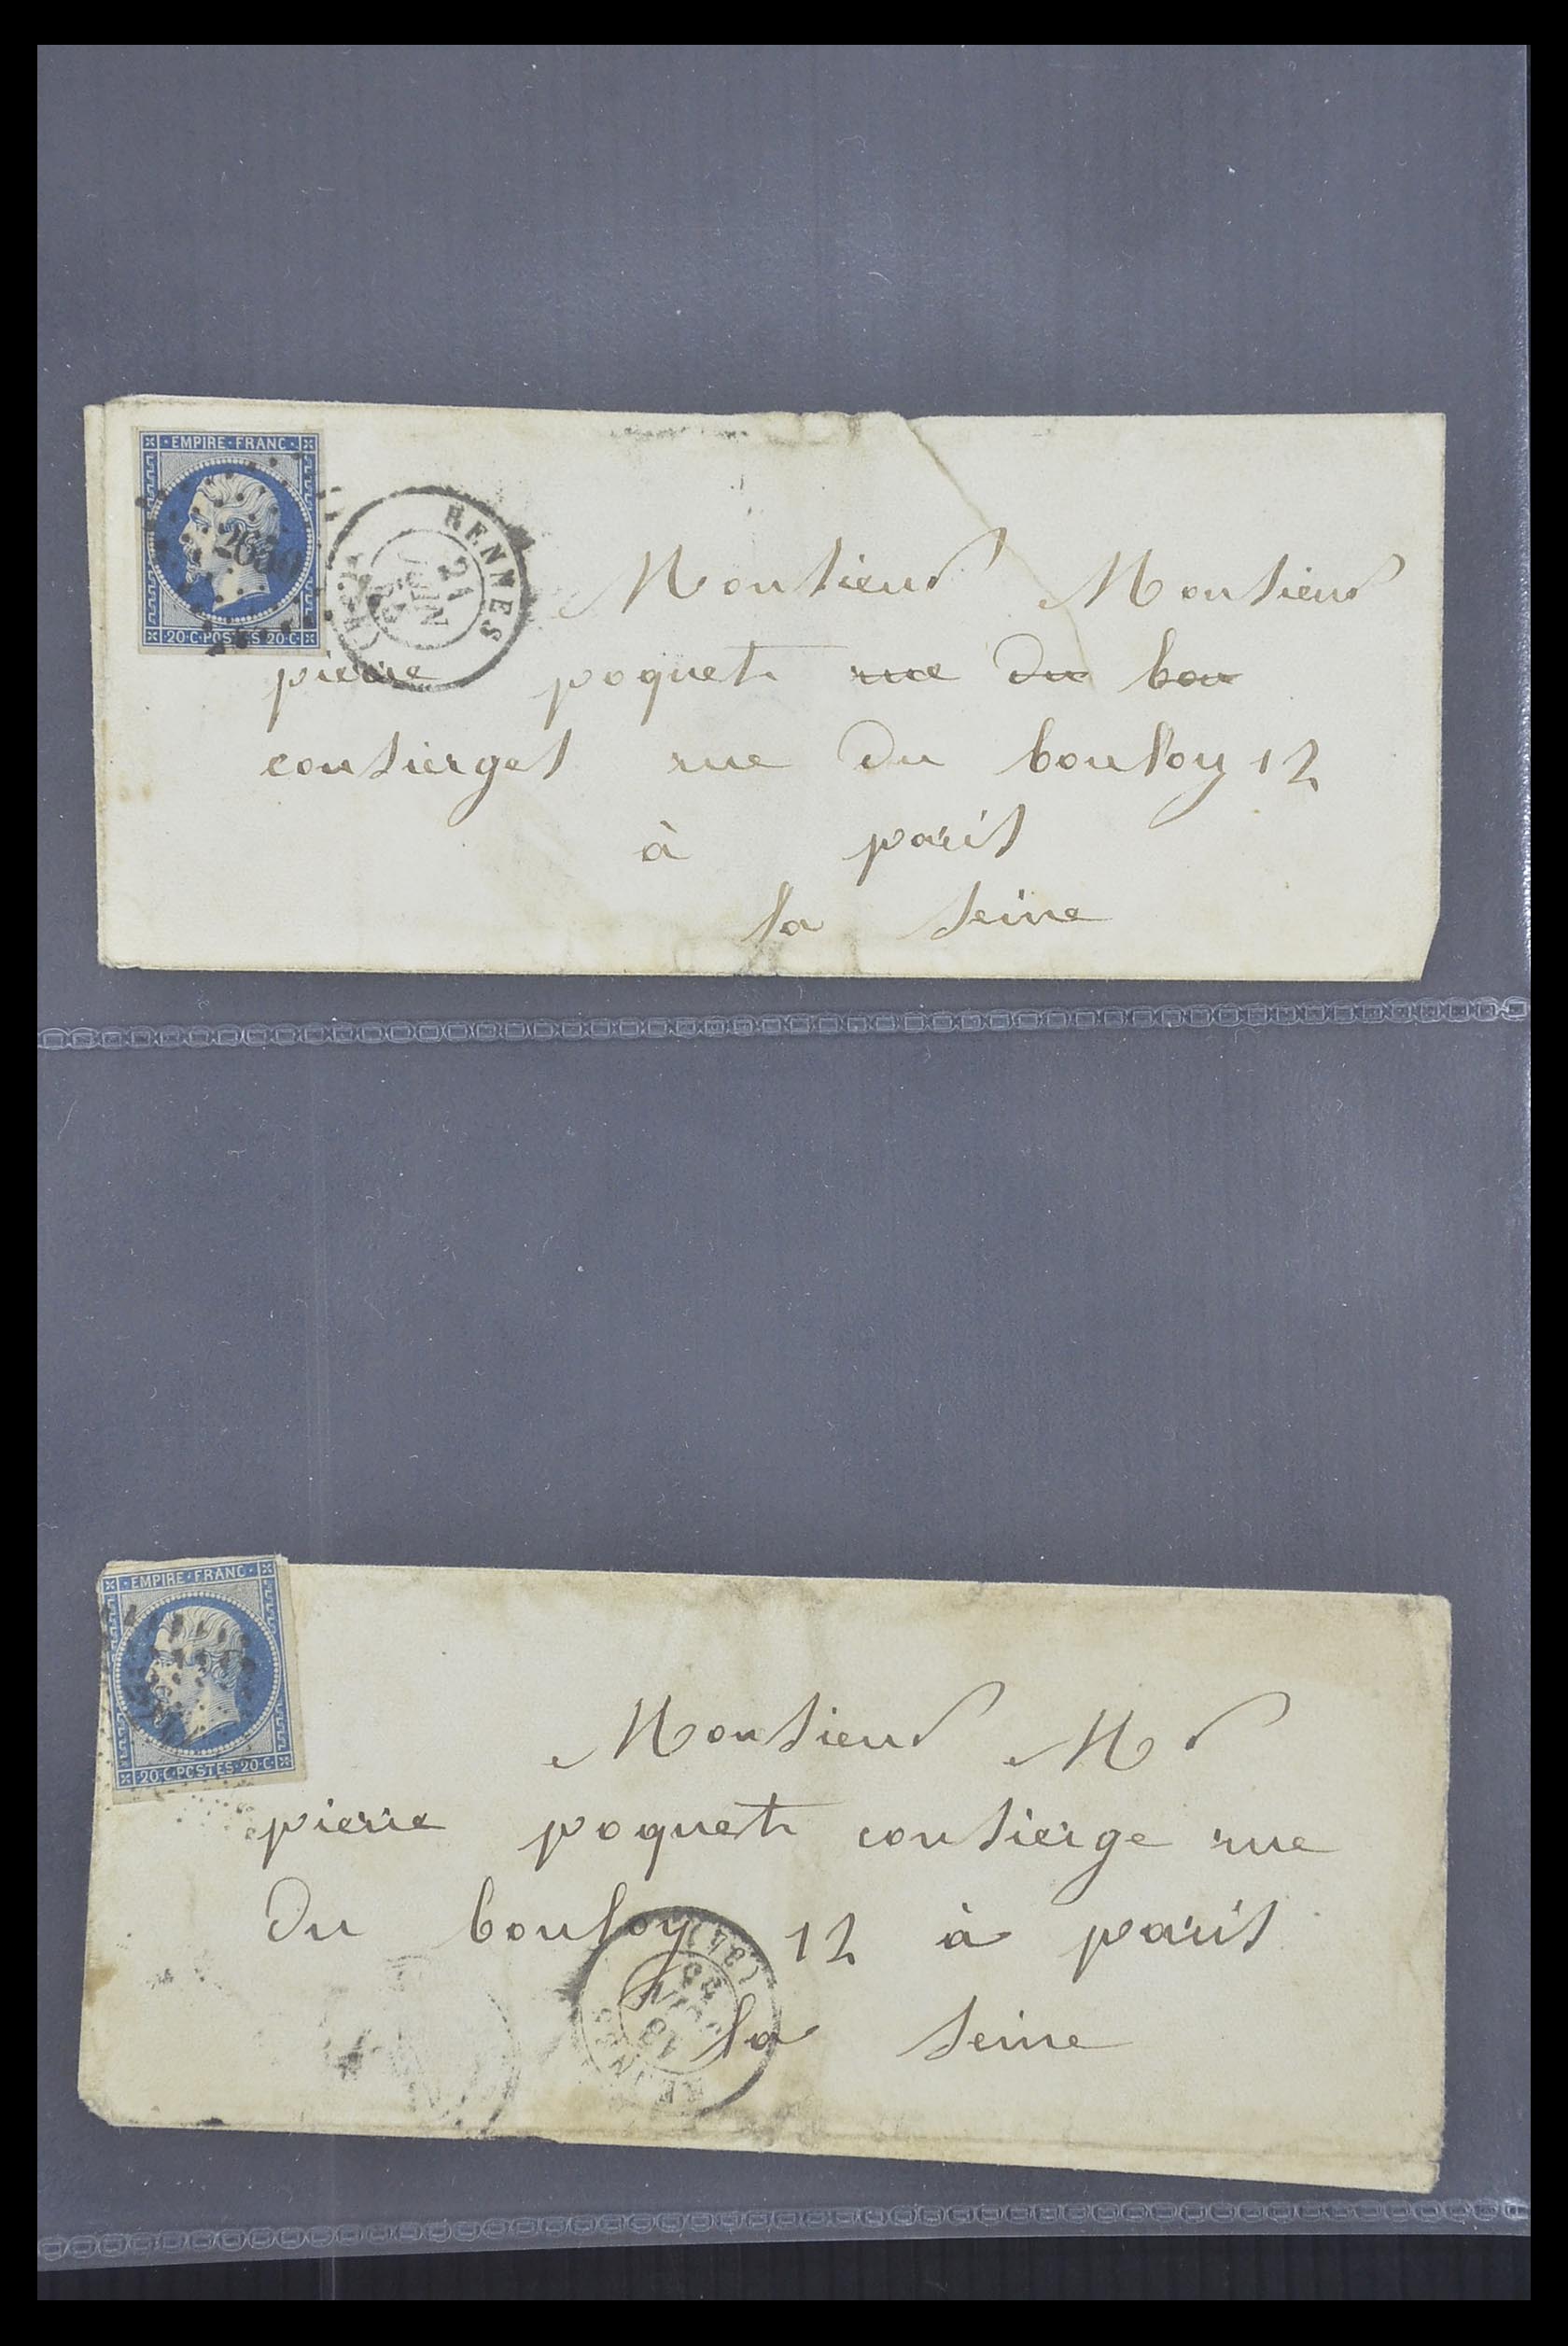 EMPIRE·FRANC·
20·C·POSTES·20·C·
RENNES
21
JUIN
Monsieur Monsieur
pierre poquet rue du bou
consierges rue du bouloy 12
à paris
la seine
EMPIRE·FRANC·
20·C·POSTES·20·C·
Monsieur Mr
pierre poquet consierge rue
du bouloy 12 à paris
la seine